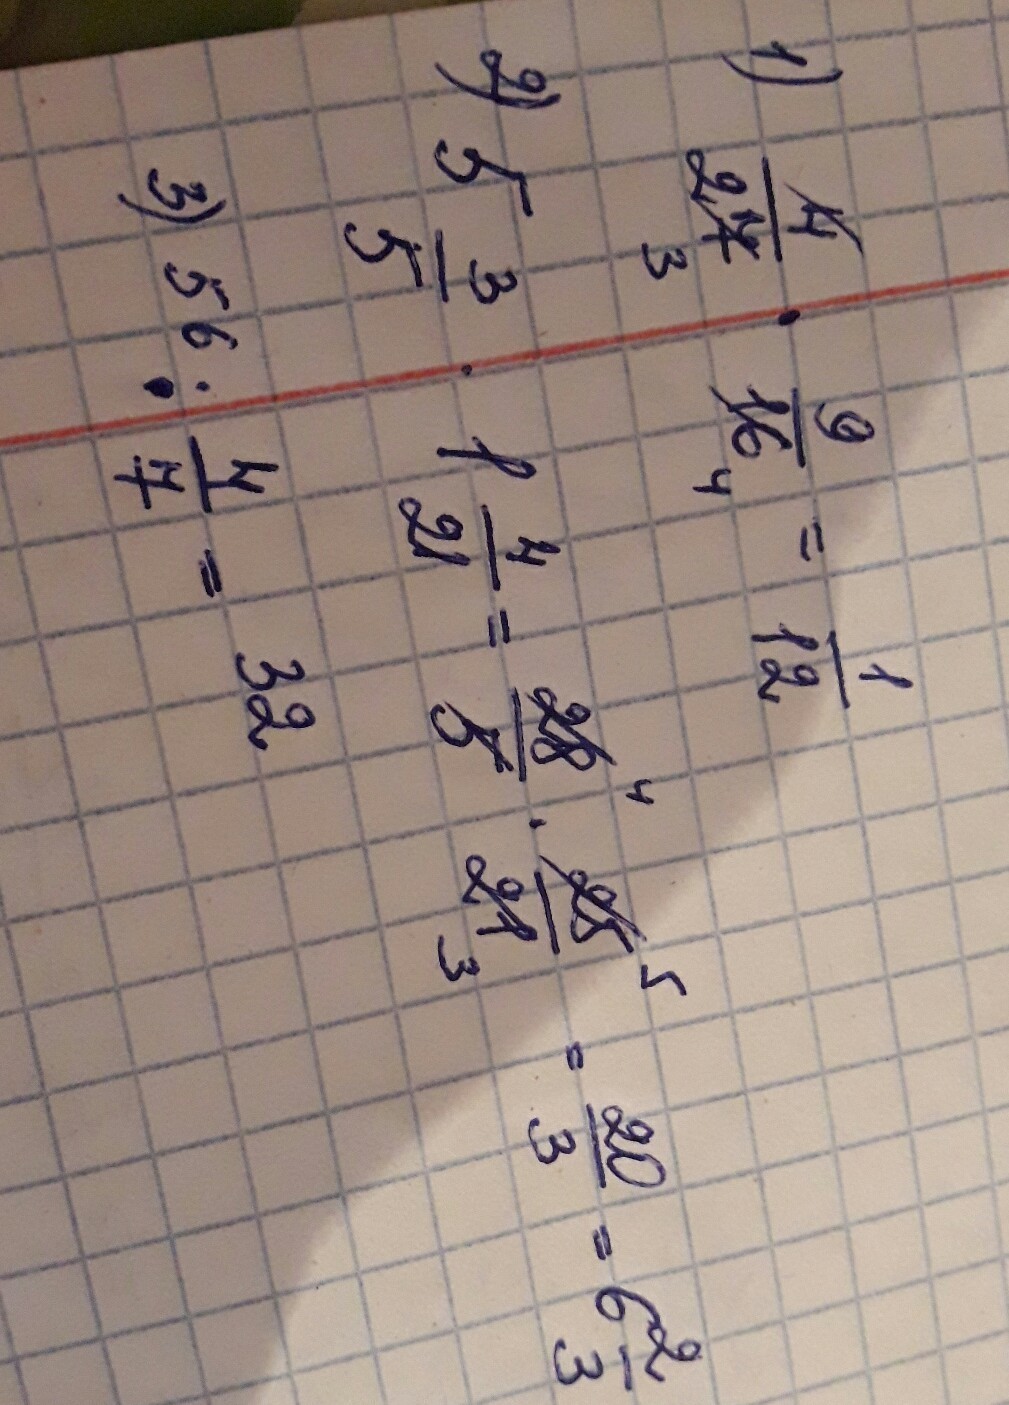 1) 4/27 3 · 9/16 4 = 1/12
2) 5 3/5 · 1 4/21 = 28/5 4 · 25/21 5 3 = 20/3 = 6 2/3
3) 56 · 4/7 = 32